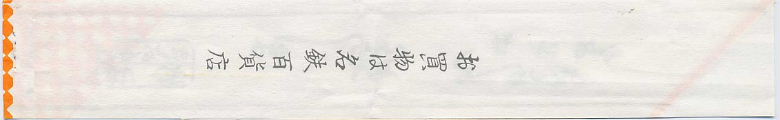 お買物は名鉄百貨店